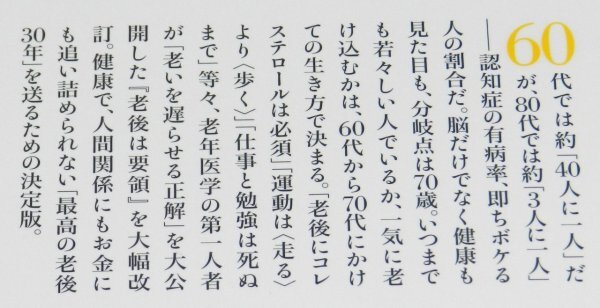 60代では約「40人に一人」だ
が、80代では約「3人に一人」
――認知症の有病率、即ちボケる
人の割合だ。脳だけでなく健康も
見た目も、分岐点は70歳。いつまで
も若々しい人でいるか、一気に老
け込むかは、60代から70代にかけ
ての生き方で決まる。「老後にコレ
ステロールは必須」「運動は〈走る〉
より〈歩く〉」「仕事と勉強は死ぬ
まで」等々、老年医学の第一人者
が「老いを遅らせる正解」を大公
開した『老後は要領』を大幅改
訂。健康で、人間関係にもお金に
も追い詰められない「最高の老後
30年」を送るための決定版。